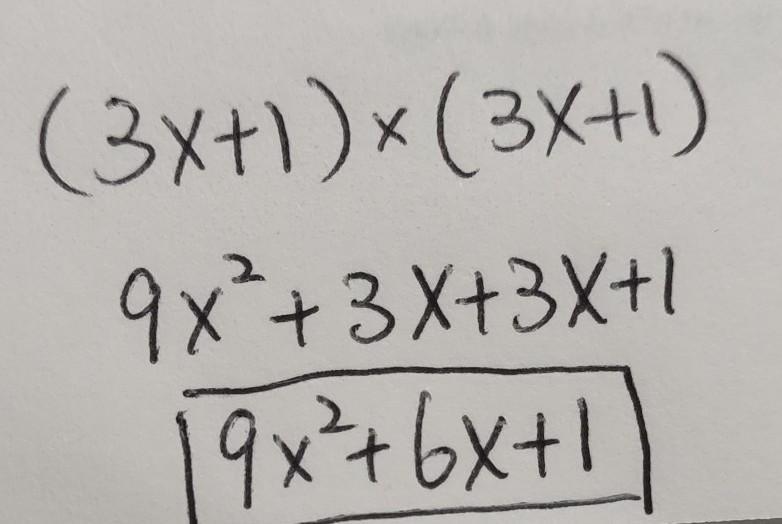 (3x+1)×(3x+1)
9x²+3x+3x+1
9x²+6x+1